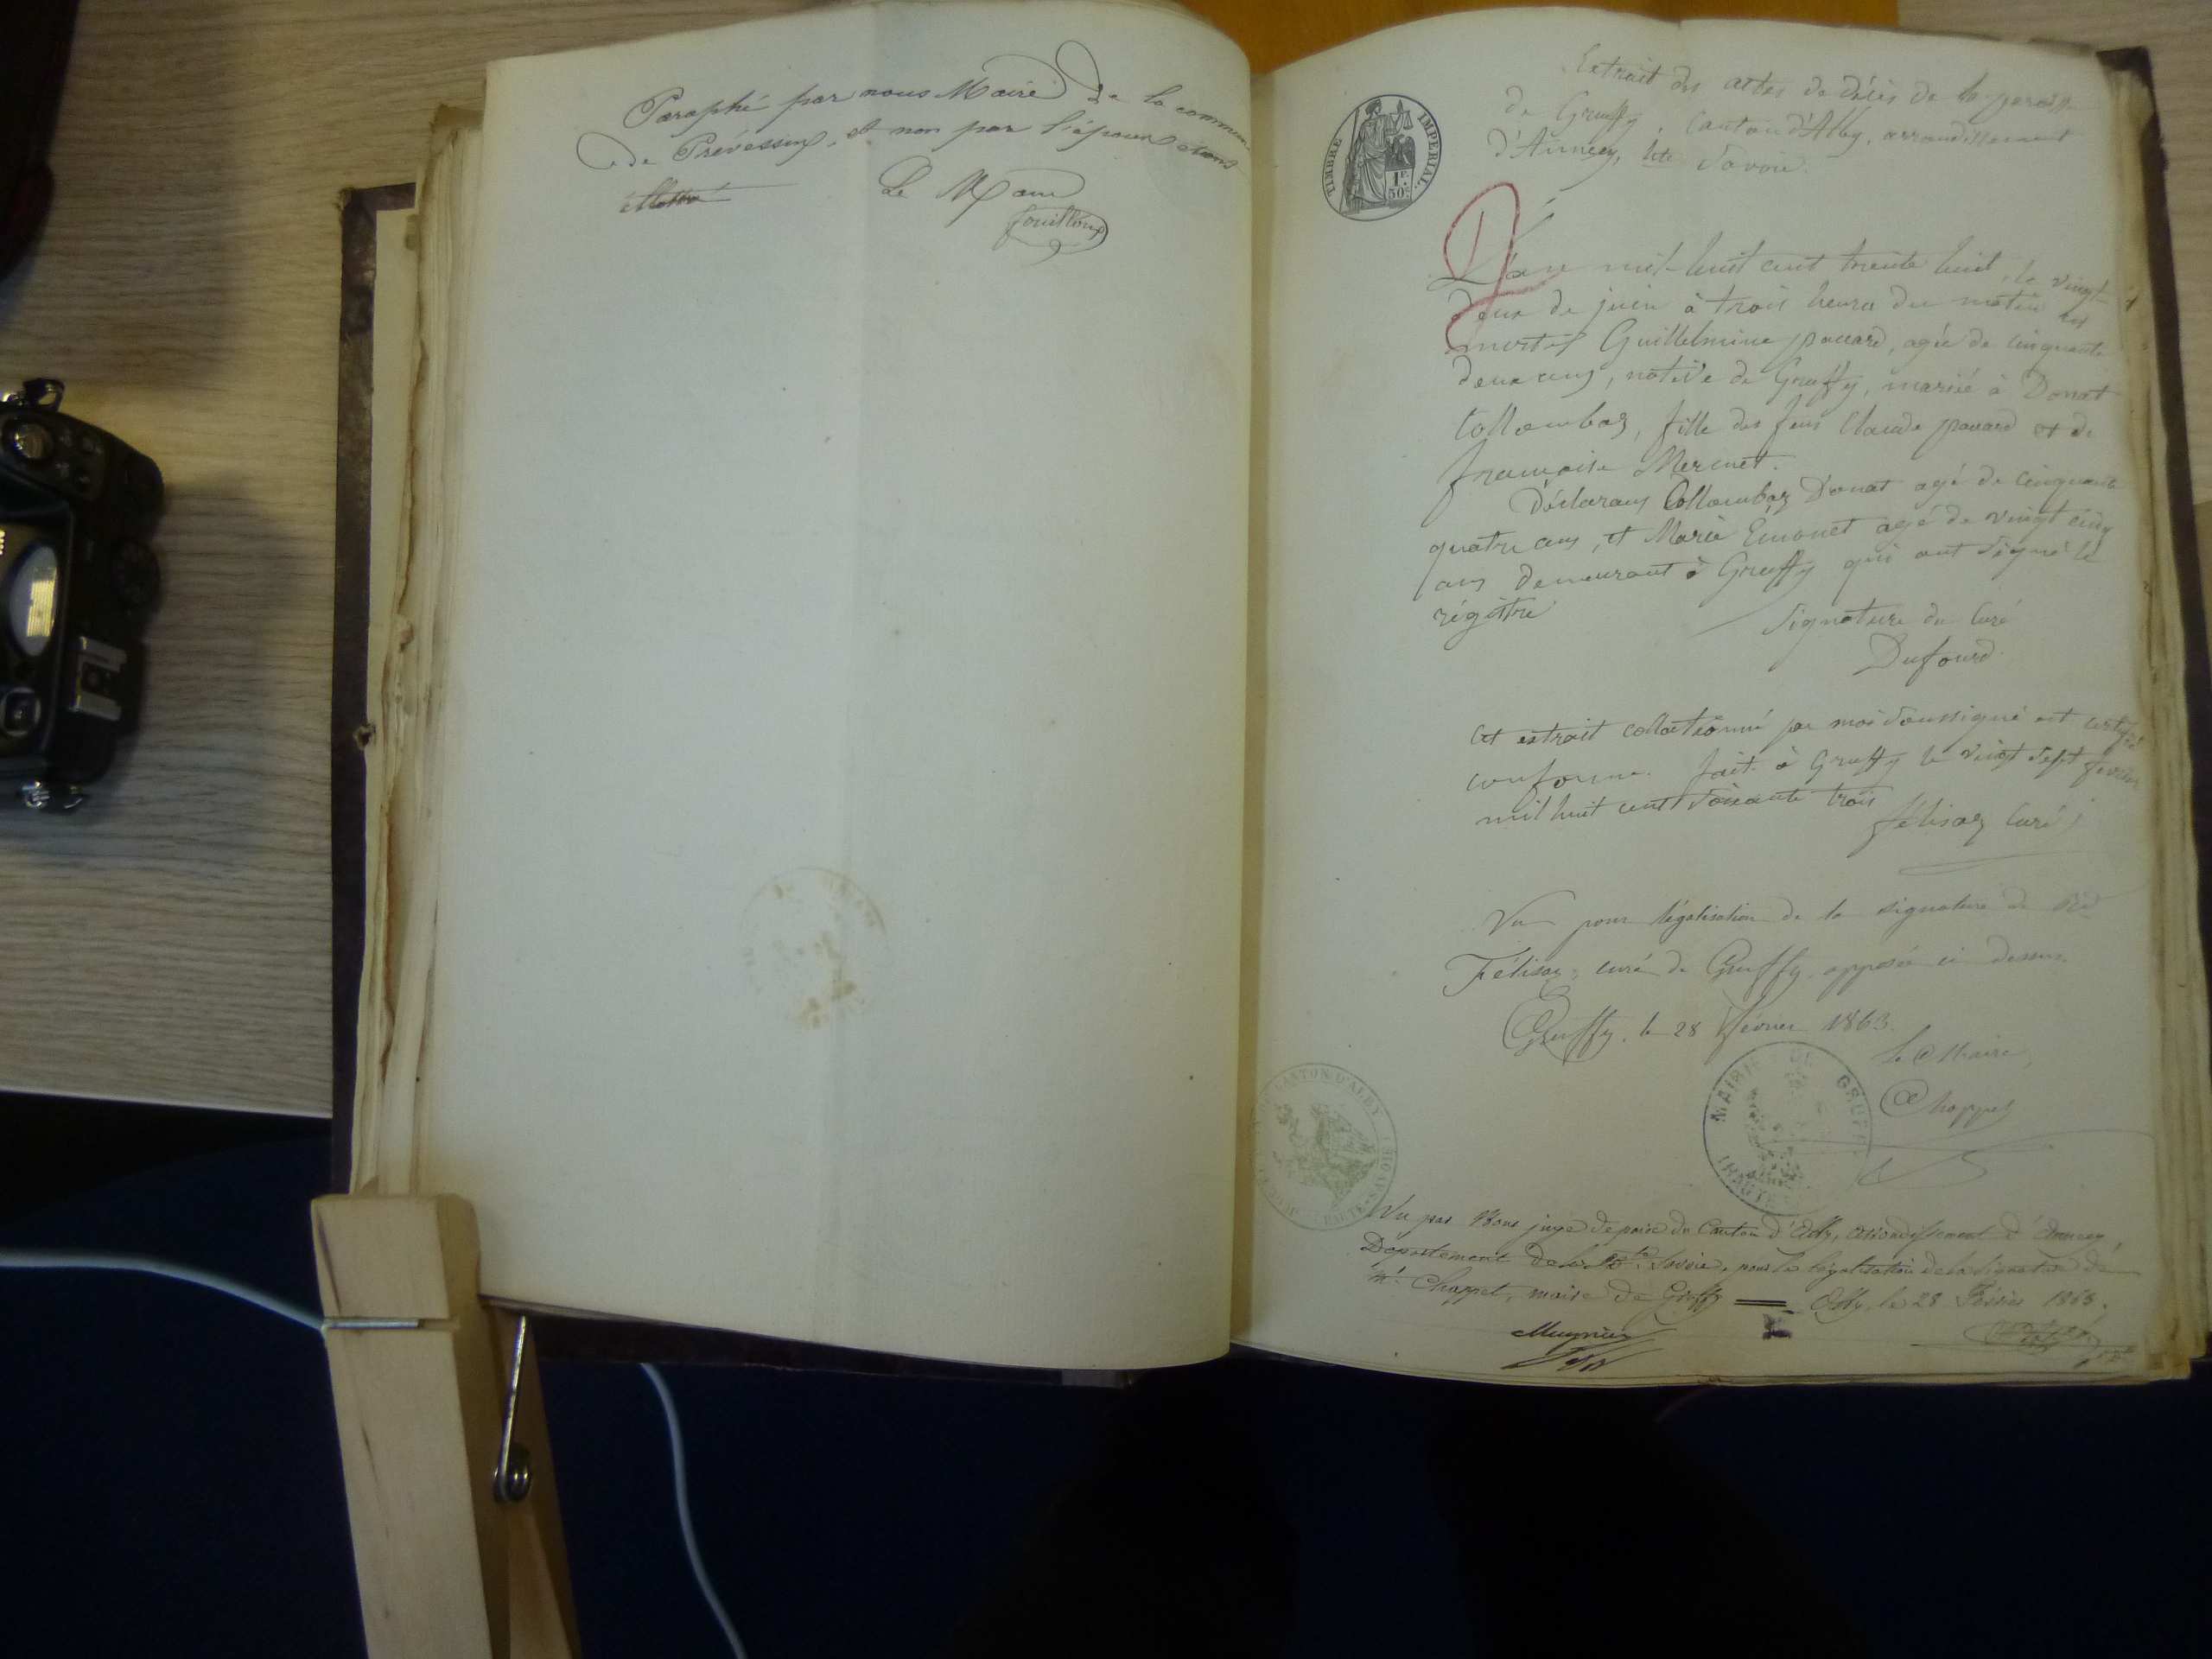 Paraphé par nous Maire de la commune
de Prévessin, et non par l'épouse
Le Maire
fouilloux
Extrait des actes de décès de la paroisse
de Gruffy, Canton d'Alby, arrondissement
d'Annecy, hte Savoie.
TIMBRE IMPÉRIAL
1F.
50c.
L'an mil-huit cent trente huit, le vingt-
deux de juin à trois heures du matin est
morte Guillelmine pauard, agée de cinquante
deux ans, native de Gruffy, mariée à Donat
Collombaz, fille des feus Claude pauard et de
françoise Mermet.
Déclarans Collombaz Donat agé de cinquante
quatre ans, et Marie Emonet agé de vingt cinq
ans demeurant à Gruffy qui ont signé le
régistre
Signature du Curé
Dufourd.
Cet extrait collationné par moi soussigné est certifié
conforme. fait à Gruffy le vingt sept fevrier
mil huit cent soixante trois
félisaz Curé
Vu pour légalisation de la signature de Rd
Félisaz, curé de Gruffy apposée ci dessus.
Gruffy, le 28 février 1863.
le Maire,
Chappet
MAIRIE DE GRUFFY
CANTON D'ALBY
HAUTE-SAVOIE
Vu par Nous juge de paix du Canton d'Alby, arrondissement d'Annecy,
Département de la Hte Savoie, pour la légalisation de la signature de
Mr Chappet, maire de Gruffy = Alby, le 28 Février 1863.